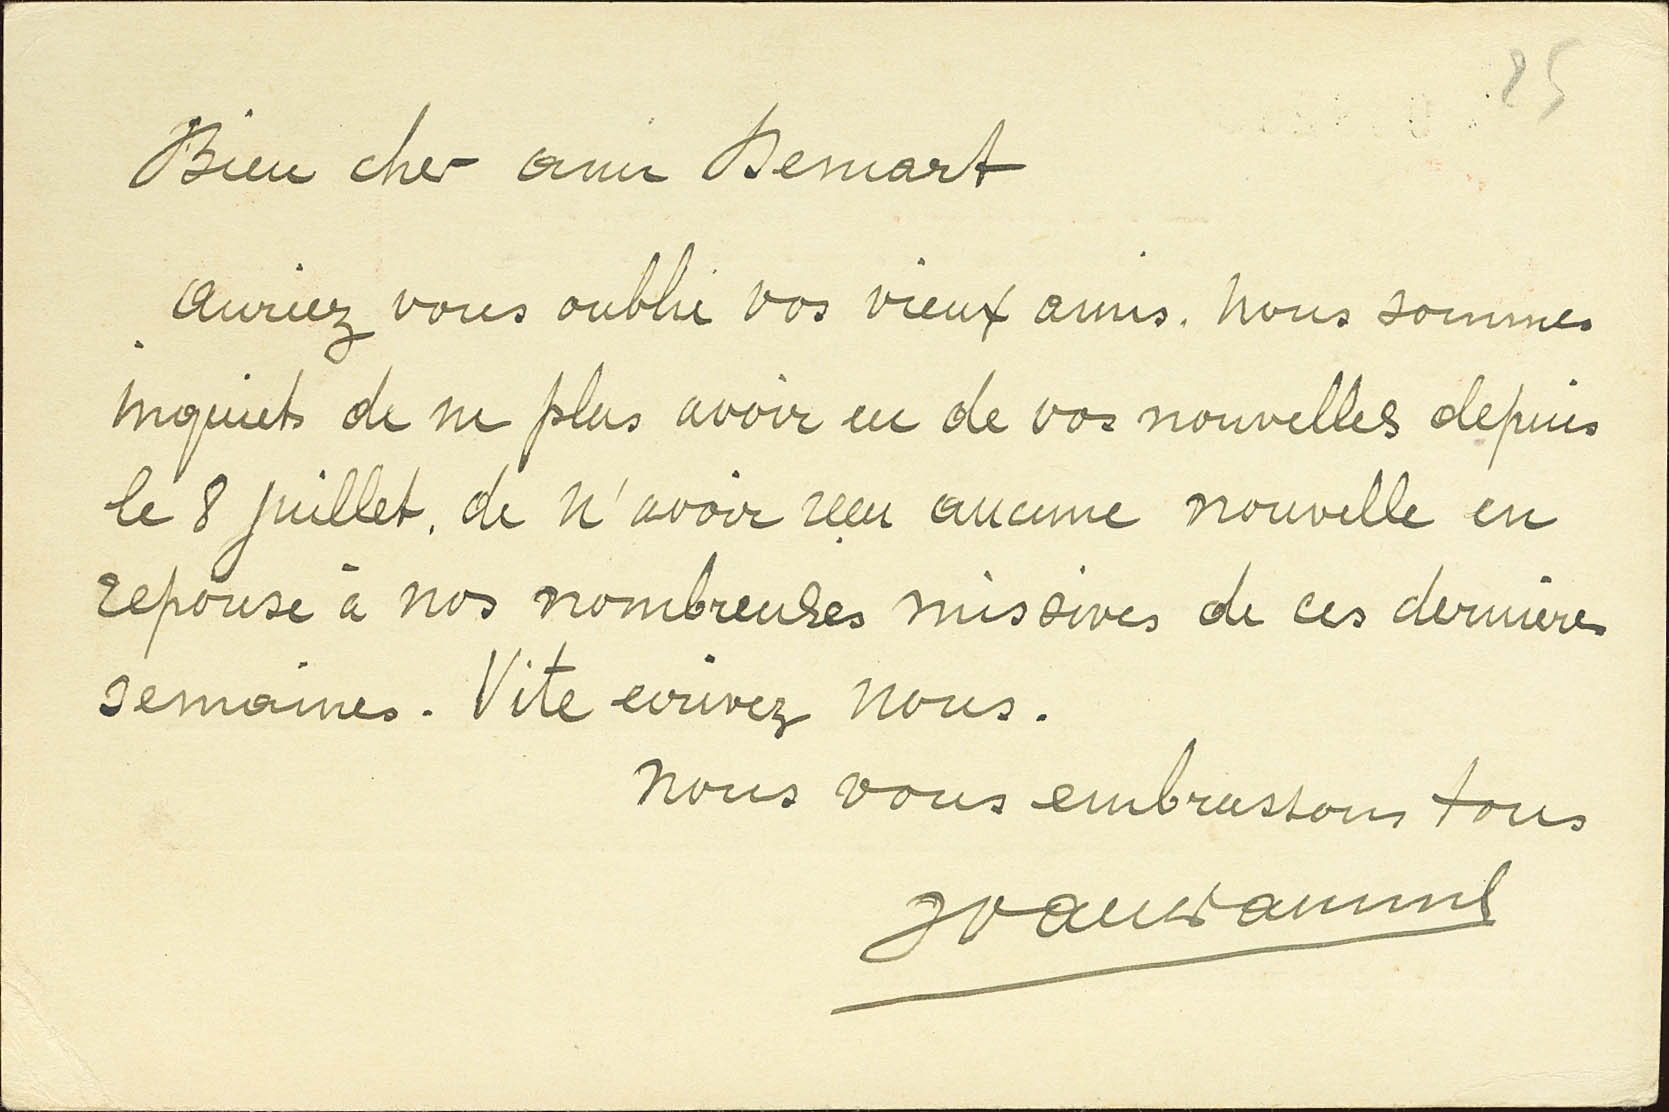 25
Bien cher ami Demart
auriez vous oublié vos vieux amis. nous sommes
inquiets de ne plus avoir eu de vos nouvelles depuis
le 8 juillet, de n'avoir reçu aucune nouvelle en
reponse à nos nombreuses missives de ces dernières
semaines. Vite ecrivez nous.
nous vous embrassons tous